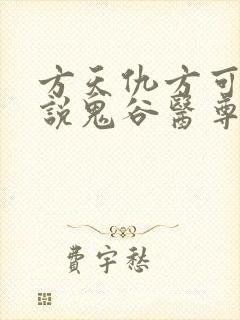 方天仇方可
說鬼谷醫尊
費宇愁